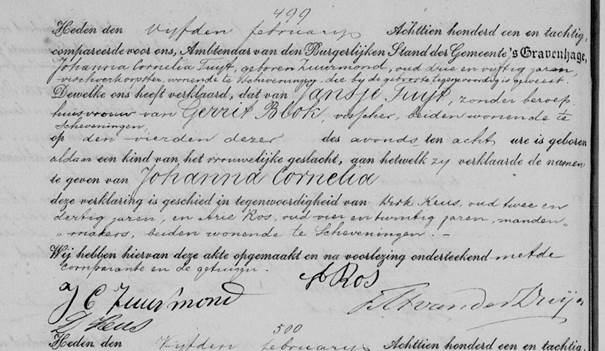 499
Heden den Vyfden februarij Achttien honderd een en tachtig,
compareerde voor ons, Ambtenaar van den Burgerlijken Stand der Gemeente 's Gravenhage,
Johanna Cornelia Tuijt, geboren Zuurmond, oud drie en vyftig jaren,
wonende te Scheveningen, die by de geboorte tegenwoordig is geweest.
Dewelke ons heeft verklaard, dat van Jansje Tuijt, zonder beroep
huisvrouw van Gerrit Blok, visscher, beiden wonende te
Scheveningen,
op den vierden dezer des avonds ten acht ure is geboren
aldaar een kind van het vrouwelijke geslacht, aan hetwelk zy verklaarde de namen
te geven van Johanna Cornelia
deze verklaring is geschied in tegenwoordigheid van Dirk Heus, oud twee en
dertig jaren, en Arie Ros, oud vier en twintig jaren, manden-
makers, beiden wonende te Scheveningen. -
Wij hebben hiervan deze akte opgemaakt en na voorlezing onderteekend met de
comparante en de getuigen.
A Ros
J C Zuurmond
D Heus
500
Heden den Vyfden februarij Achttien honderd een en tachtig,